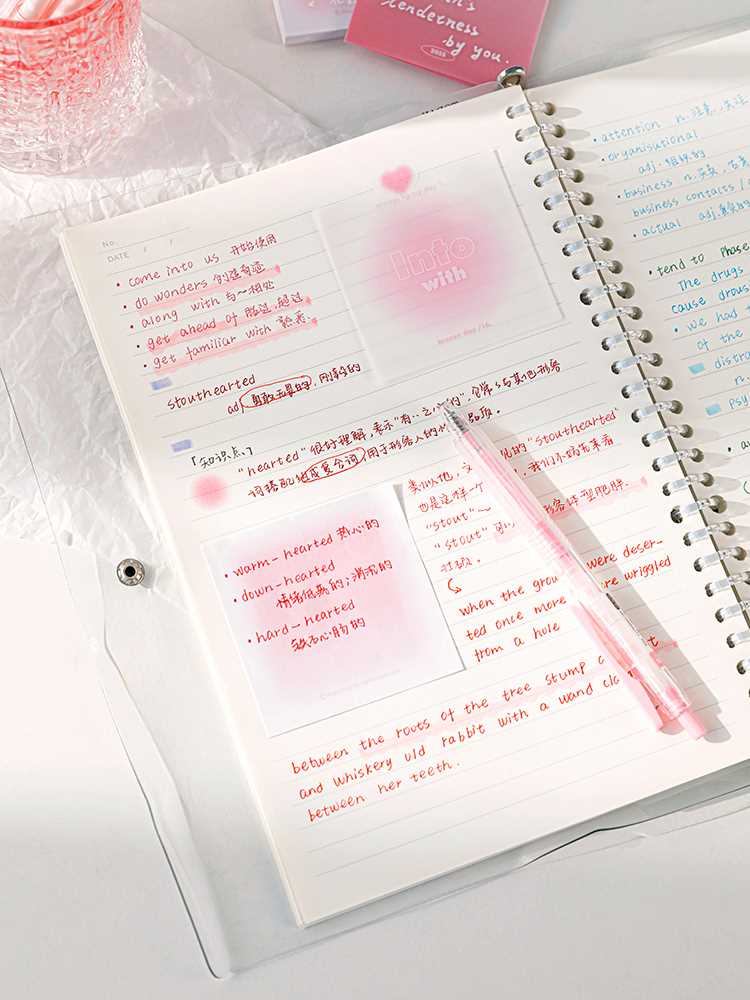 tenderness
by you.
2025
No.
DATE / /
• come into us 开始使用
• do wonders 创造奇迹
• along with 与~相处
• get ahead of 胜过,超过
• get familiar with 熟悉
Into
with
stouthearted
adj 勇敢无畏的,刚毅的
「知识点」
"hearted" 很好理解,表示"有··之心的",
词搭配组成复合词,用于形容人的
的"stouthearted"
也是这样一个
"stout"~
"stout" 可
形容体型肥胖.
壮硕.
• warm-hearted 热心的
• down-hearted
情绪低落的;消沉的
• hard-hearted
铁石心肠的
when the grou were deser-
ted once more re wriggled
from a hole
between the roots of the tree stump
and whiskery old rabbit with a wand
between her teeth.
• attention n.注意,
• organisutional
adj.组织的
• business n.
business contacts /
• actual adj.
• tend to phase
The drugs
cause drous
• we had
of the
• distra
• psy